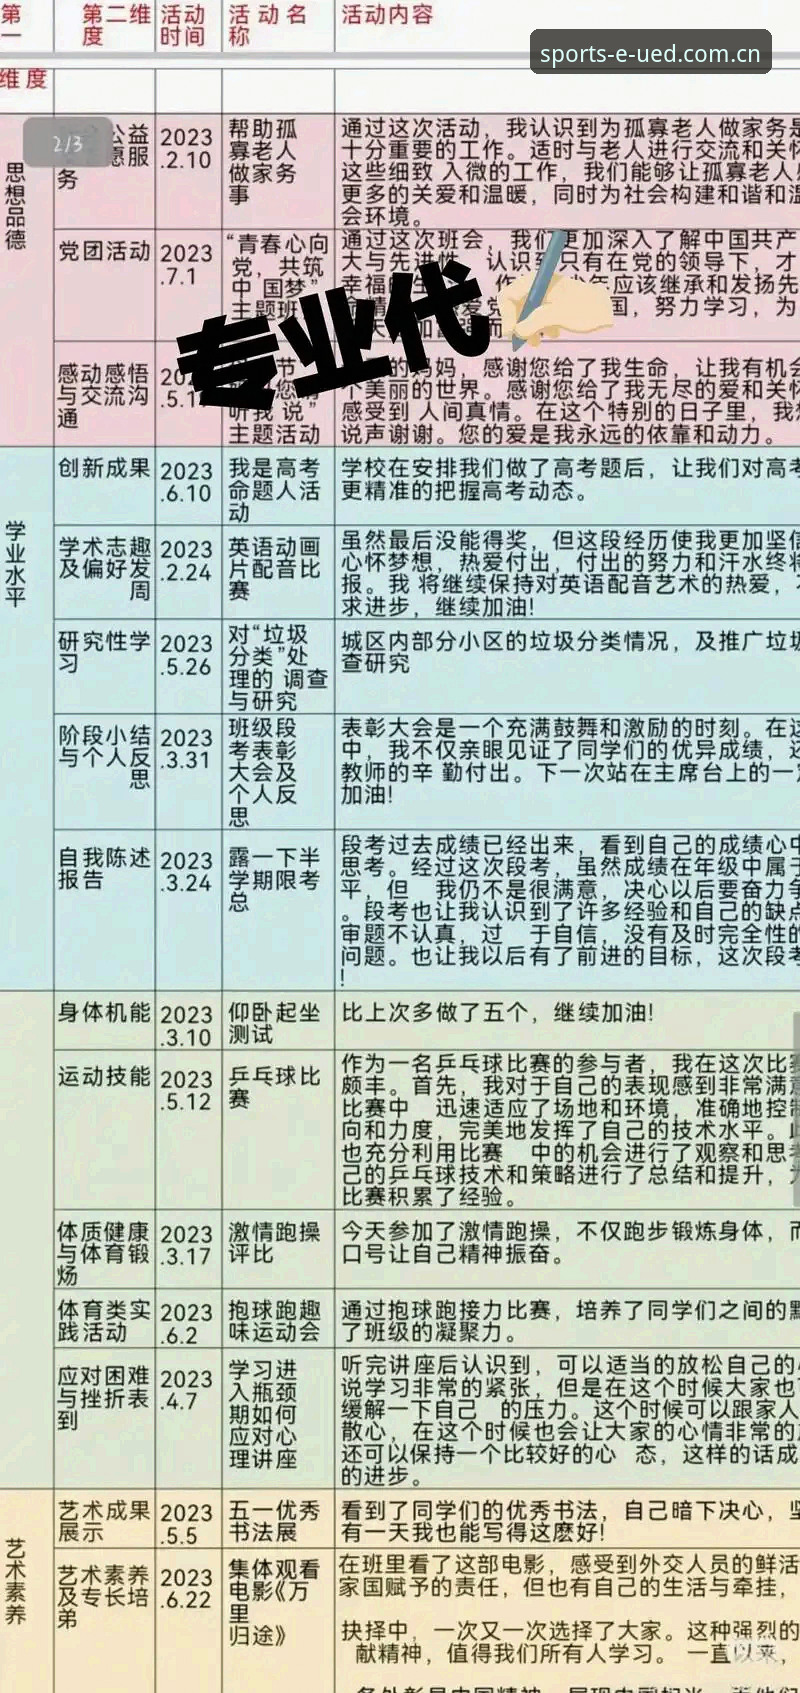 第一
维度
第二维度
活动时间
活动名称
活动内容
sports-e-ued.com.cn
2/3
思想品德
公益
愿服
务
2023
.2.10
帮助孤
寡老人
做家务
事
通过这次活动，我认识到为孤寡老人做家务是
十分重要的工作。适时与老人进行交流和关怀
这些细致 入微的工作，我们能够让孤寡老人
更多的关爱和温暖，同时为社会构建和谐和温
会环境。
党团活动
2023
.7.1
“青春心向
党，共筑
中 国梦”
主题班
通过这次班会，我们更加深入了解中国共产
大与先进性，认识到只有在党的领导下，才
幸福的生
少年应该继承和发扬先
国，努力学习，为
专业代
感动感悟
与交流沟
通
.5.1
听我 说”
主题活动
的妈妈，感谢您给了我生命，让我有机会
个美丽的世界。感谢您给了我无尽的爱和关怀
感受到 人间真情。在这个特别的日子里，我
说声谢谢。您的爱是我永远的依靠和动力。
学业水平
创新成果
2023
.6.10
我是高考
命题人活
动
学校在安排我们做了高考题后，让我们对高考
更精准的把握高考动态。
学术志趣
及偏好发
周
2023
.2.24
英语动画
片配音比
赛
虽然最后没能得奖，但这段经历使我更加坚信
心怀梦想，热爱付出，付出的努力和汗水终将
报。我 将继续保持对英语配音艺术的热爱，
求进步，继续加油!
研究性学
习
2023
.5.26
对“垃圾
分类”处
理的 调查
与研究
城区内部分小区的垃圾分类情况，及推广垃圾
查研究
阶段小结
与个人反
思
2023
.3.31
班级段
考表彰
大会及
个人反
思
表彰大会是一个充满鼓舞和激励的时刻。在这
中，我不仅亲眼见证了同学们的优异成绩，还
教师的辛 勤付出。下一次站在主席台上的一定
加油!
自我陈述
报告
2023
.3.24
露一下半
学期限考
总
段考过去成绩已经出来，看到自己的成绩心中
思考。经过这次段考，虽然成绩在年级中属于
平，但 我仍不是很满意，决心以后要奋力争
。段考也让我认识到了许多经验和自己的缺点
审题不认真，过 于自信，没有及时完全性的
问题。也让我以后有了前进的目标，这次段考
!
身体机能
2023
.3.10
仰卧起坐
测试
比上次多做了五个，继续加油!
运动技能
2023
.5.12
乒乓球比
赛
作为一名乒乓球比赛的参与者，我在这次比赛
颇丰。首先，我对于自己的表现感到非常满意
比赛中 迅速适应了场地和环境，准确地控制
向和力度，完美地发挥了自己的技术水平。
也充分利用比赛 中的机会进行了观察和思考
己的乒乓球技术和策略进行了总结和提升，为
比赛积累了经验。
体质健康
与体育锻
炀
2023
.3.17
激情跑操
评比
今天参加了激情跑操，不仅跑步锻炼身体，而
口号让自己精神振奋。
体育类实
践活动
2023
.6.2
抱球跑趣
味运动会
通过抱球跑接力比赛，培养了同学们之间的默
了班级的凝聚力。
应对困难
与挫折表
到
2023
.4.7
学习进
入瓶颈
期如何
应对心
理讲座
听完讲座后认识到，可以适当的放松自己的心
说学习非常的紧张，但是在这个时候大家也
缓解一下自己 的压力。这个时候可以跟家人
散心，在这个时候也会让大家的心情非常的
还可以保持一个比较好的心 态，这样的话成
的进步。
艺术素养
艺术成果
展示
2023
.5.5
五一优秀
书法展
看到了同学们的优秀书法，自己暗下决心，坚
有一天我也能写得这麽好!
艺术素养
及专长培
弟
2023
.6.22
集体观看
电影《万
里
归途》
在班里看了这部电影，感受到外交人员的鲜活
家国赋予的责任，但也有自己的生活与牵挂，
抉择中，一次又一次选择了大家。这种强烈的
献精神，值得我们所有人学习。 一直以来，